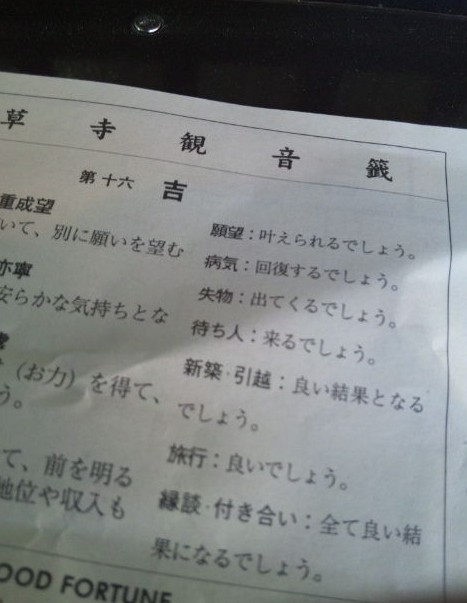 草寺観音籤
第十六 吉
重成望
いて、別に願いを望む
亦寧
安らかな気持ちとな
（お力）を得て、
う。
て、前を明る
地位や収入も
願望：叶えられるでしょう。
病気：回復するでしょう。
失物：出てくるでしょう。
待ち人：来るでしょう。
新築・引越：良い結果となる
でしょう。
旅行：良いでしょう。
縁談・付き合い：全て良い結
果になるでしょう。
OOD FORTUNE